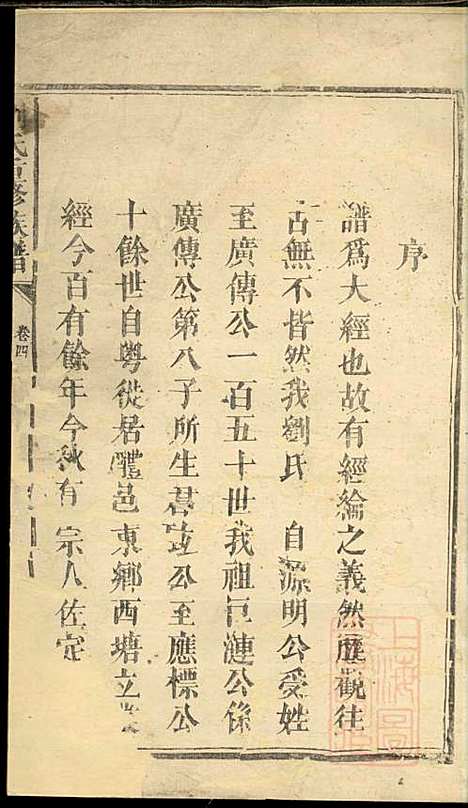 序
譜爲大經也故有經綸之義然歷觀往
古無不皆然我劉氏 自源明公受姓
至廣傳公一百五十世我祖巨漣公係
廣傳公第八子所生君 公至應標公
十餘世自粵徙居醴邑東鄉西塘立
經今百有餘年今秋有 宗人佐定
氏重修族譜
卷四
上海圖